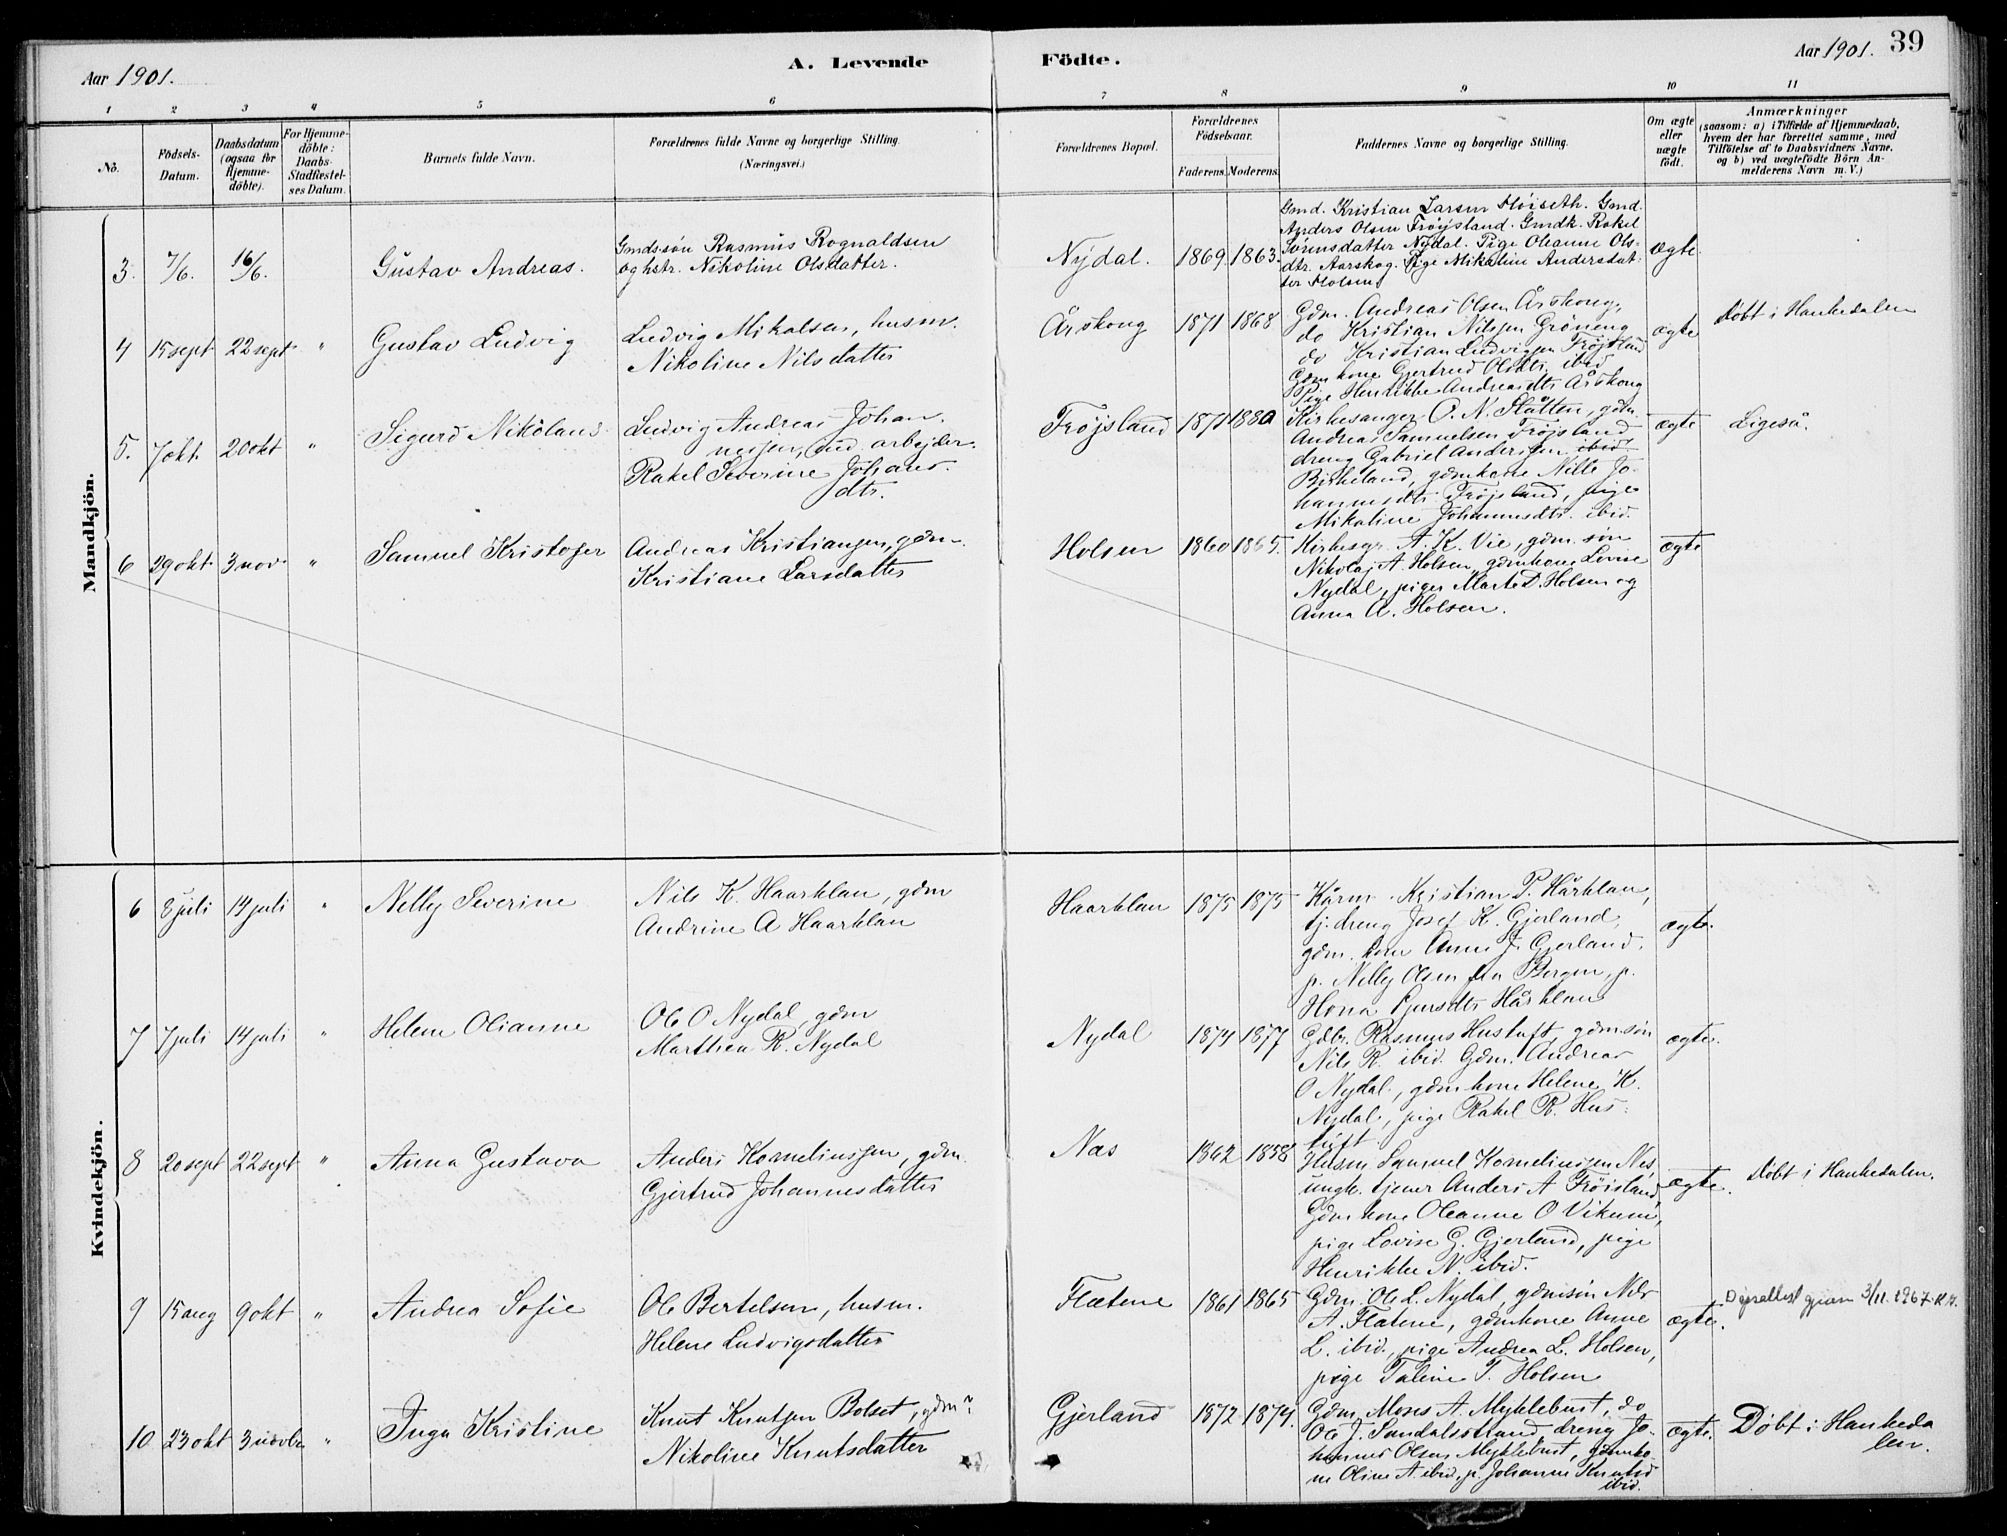 Aar 1901.
A. Levende
Födte.
Aar 1901. 39
1 2 3 4 5 6 7 8 9 10 11
No.
Födsels-
Datum.
Daabsdatum
(ogsaa for
Hjemme-
döbte).
For Hjemme-
döbte:
Daabs-
Stadfæstel-
ses Datum.
Barnets fulde Navn.
Forældrenes fulde Navne og borgerlige Stilling
(Næringsvei.)
Forældrenes Bopæl.
Forældrenes
Födselsaar.
Faderens. Moderens.
Faddernes Navne og borgerlige Stilling.
Om ægte
eller
uægte
födt.
Anmærkninger
(saasom: a) i Tilfælde af Hjemmedaab,
hvem der har forrettet samme, med
Tilföielse af to Daabsvidners Navne,
og b) ved uægtefödte Börn An-
melderens Navn m. V.)
Mandkjön.
3. 7/6. 16/6. Gustav Andreas.
Gmds.søn Rasmus Rognaldsen
og hstr. Nikoline Olsdatter.
Nydal. 1869. 1863.
Gmd. Kristian Larsen Fløiseth. Gmd.
Anders Olsen Frøysland. Gmdk. Rakel
Sørensdatter Nydal. Pige Oleanne Ols-
dtr. Aarskog. Pige Mikaline Andersdat-
ter Holsen.
ægte.
4 15 sept 22 sept " Gustav Ludvig
Ludvig Mikalsen, husm.
Nikoline Nilsdatter
Årskong 1871 1868
Gdm. Andreas Olsen Årskong,
do Kristian Nilssen Grøneng
do Kristian Ludvigsen Frøjsland
Gdm kone Gjertrud Olsdtr. ibid
Pige Henrikke Andreasdtr Årskong
ægte
Døbt i Haukedalen
5. 7 okt. 20 okt " Sigurd Nikolaus
Ludvig Andreas Johan-
nessen, ind. arbejder
Rakel Severine Johans-
dtr.
Frøjsland 1871 1880
Kirkesanger O. N. Slåtten, gdm.
Andreas Samuelsen Frøjsland,
dreng Gabriel Andersen ibid
Birkeland, gdmkone Nille Jo-
hannesdtr Frøjsland, pige
Mikaline Johannesdtr. ibid.
ægte
Ligeså.
6 29 okt. 3 nov. " Samuel Kristofer
Andreas Kristiansen, gdm.
Kristiane Larsdatter
Holsen 1860 1865.
Kirkesgr. A. K. Vie, gdm. søn
Nikolaj A. Holsen, gdmkone Lovise
Nydal, piger Marte D. Holsen og
Anna A. Holsen.
ægte
Kvindekjön.
6 8 juli 14 juli " Nelly Severine
Nils K. Haarklau, gdm
Andrine A Haarklau
Haarklau 1875 1875
Kårm. Kristian P. Hårklau,
tj. dreng Josef K. Gjerland,
gdm. kone Anne J. Gjerland.
p. Nelly Olsen fra Bergen, p.
Hårklau
ægte.
7 7 juli 14 juli " Helene Olianne
Ole O Nydal, gdm
Marthea R. Nydal
Nydal 1874 1877
Gdbr. Rasmus Hustuft, gdm. søn
Nils R. ibid. Gdm. Andreas
O Nydal, gdm kone Helene K.
Nydal, pige Rakel R. Hus-
tuft
ægte.
8 20 sept 22 sept " Anna Gustava
Anders Korneliussen, gdm.
Gjertrud Johannesdatter
Nes 1862 1858
Samuel Korneliussen Nes,
ungk. tjener Anders A Frøisland,
Gdm kone Oleanne O Vikum,
pige Lovise G. Gjerland, pige
Henrikke N. ibid.
ægte.
Døbt i Haukedalen.
9 15 aug 9 okt " Andrea Sofie
Ole Bertelsen, husm.
Helene Ludvigsdatter
Flatene 1861 1865
Gdm. Ole L. Nydal, gdmsøn Nils
A. Flatene, gdmkone Anne
L. ibid., pige Andrea L. Holsen,
pige Taline T. Holsen
ægte.
3/11. 1967.
10 23 okt 3 novbr " Inga Kristine
Knut Knutsen Bolset, gdm?
Nikoline Knutsdatter
Gjerland 1872 1874.
Gdm. Mons A. Myklebust, do
Ole J. Sandalsstrand, dreng Jo-
hannes Olsen Myklebust, gdmko-
ne Oline A. ibid., p. Johanne Knutsd
ibid.
ægte.
Døbt i Haukeda
len.